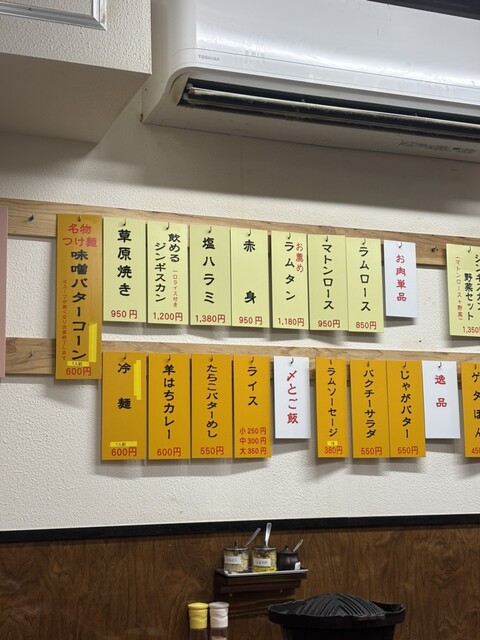 TOSHIBA
ジンギスカン
野菜セット
(マトンロース+野菜)
1,350
お肉単品
ラムロース
850円
マトンロース
950円
お薦め
ラムタン
1,180円
赤身
950円
塩ハラミ
1,380円
飲める
ジンギスカン
一口ライス付き
1,200円
草原焼き
950円
名物
つけ麺
味噌バターコーン
1人前
600円
逸品
じゃがバター
550円
パクチーサラダ
550円
ラムソーセージ
380円
〆とご飯
ライス
小250円
中300円
大350円
たらこバターめし
550円
羊はちカレー
600円
冷麺
1人前
600円